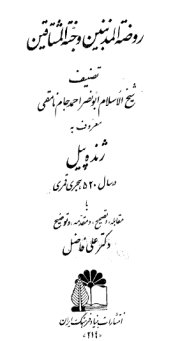 روضة المذنبین و جنة المشتاقین
تصنیف
شیخ الاسلام ابونصر احمد جام نامقی
معروف به
ژنده پیل
در سال ۵۲۰ هجری قمری
با
مقابله و تصحیح و مقدمه و توضیح
دکتر علی فاضل
انتشارات بنیاد فرهنگ ایران
«۲۱۴»